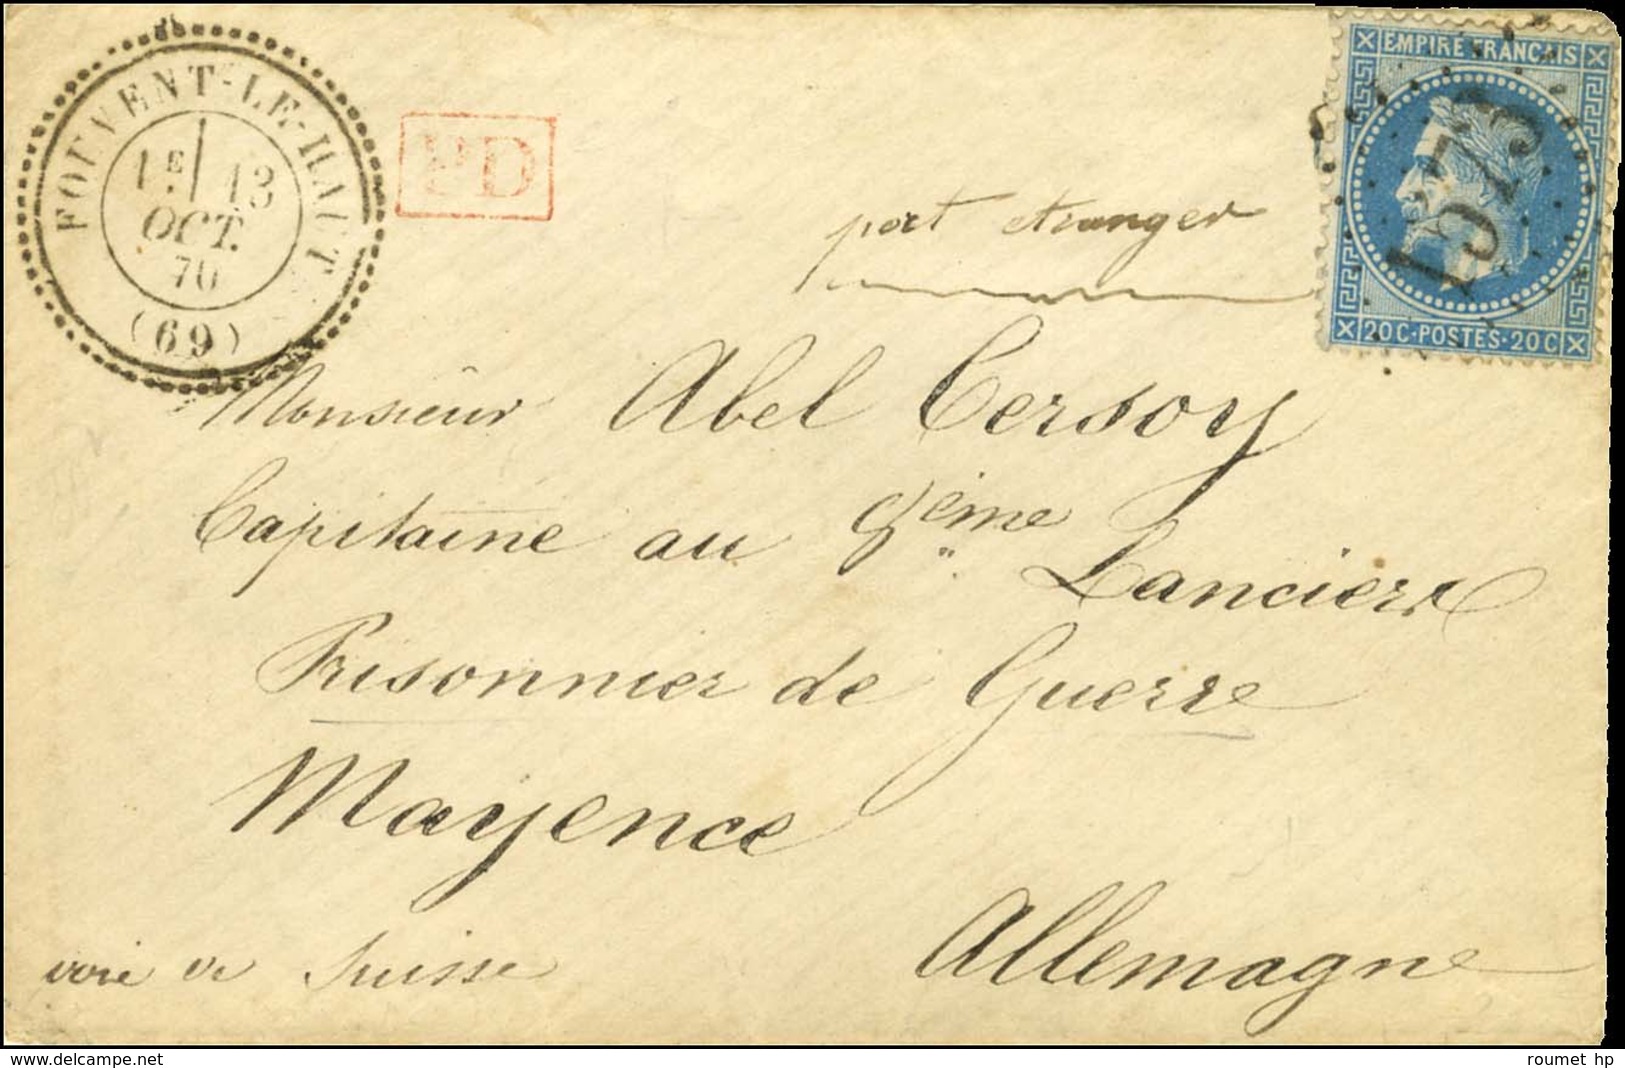 FOUVENT-LE-HAUT
1E 13
OCT.
70
(69)
PD
EMPIRE FRANCAIS
1573
20C·POSTES·20C
port etranger
Monsieur Abel Cersoy
Capitaine au 8ème Lanciers
Prisonnier de Guerre
Mayence
Allemagne
voie de Suisse
roumet hp